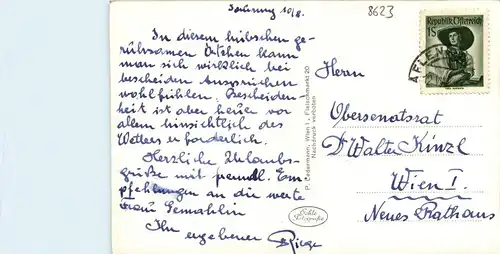 10/8.
8623
In diesem hübschen ge-
rühsamen Örtchen kann
man sich wirklich bei
bescheidenen Ansprüchen
wohlfühlen. Bescheiden-
heit ist aber heuer vor
allem hinsichtlich des
Wetters erforderlich.
Herzliche Urlaubs-
grüße mit freundl. Em-
pfehlungen an die werte
Frau Gemahlin
Ihr ergebener
P. Ledermann, Wien I, Fleischmarkt 20
Nachdruck verboten
Echte
Photografie
Republik Österreich
1S
AFLENZ
Herrn
Obersenatsrat
Dr Walter Kinzl
Wien I.
Neues Rathaus